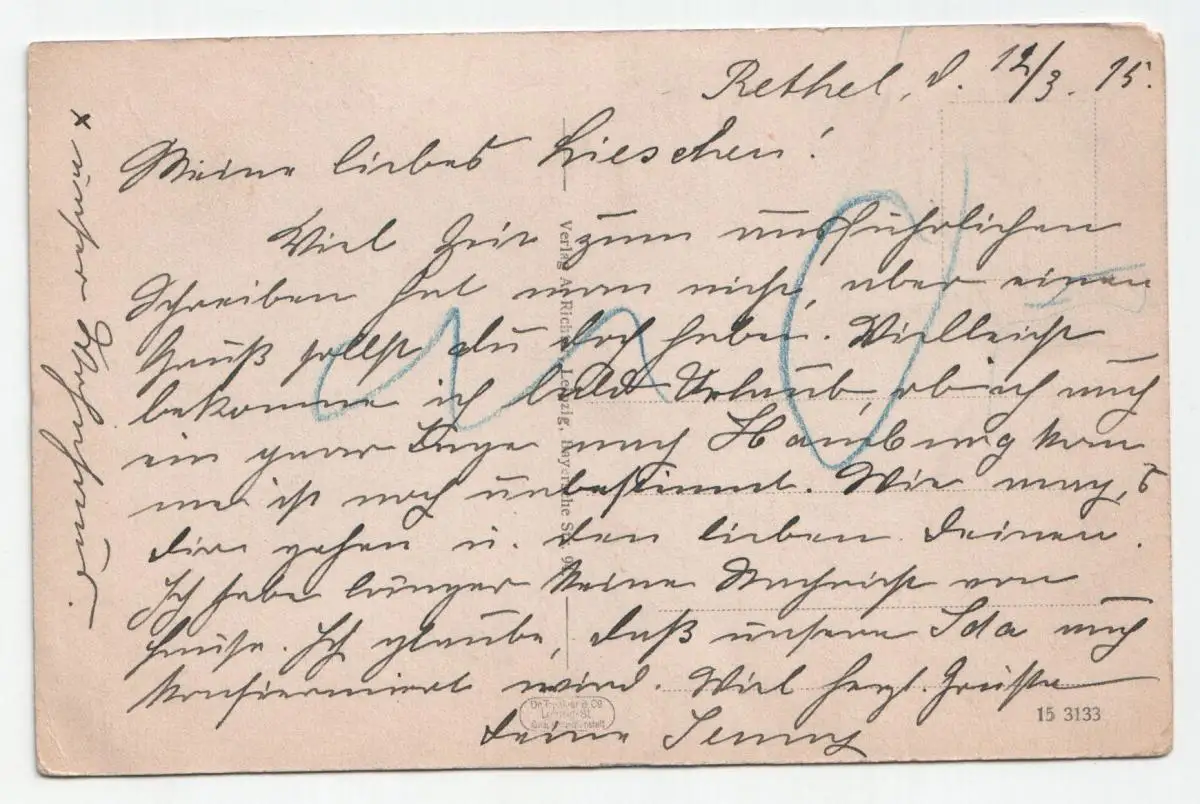 Rethel, d. 12/3. 15.
Meine liebes Lieschen!
Viel Zeit zum ausführlichen
Schreiben hat man nicht, aber einen
Gruß sollst du doch haben. Vielleicht
bekomme ich bald Urlaub, ob ich auch
ein paar Tage nach Hamburg kom
me ist noch unbestimmt. Wie mag, s
dir gehen u. den lieben Deinen.
Ich habe länger keine Nachricht von
Hause. Ich glaube, daß unsere Ida auch
konfirmiert wird. Viel herzl. Grüße
deine Jenny
Verlag A. Rich Leipzig, Bayerische Str. 9
15 3133